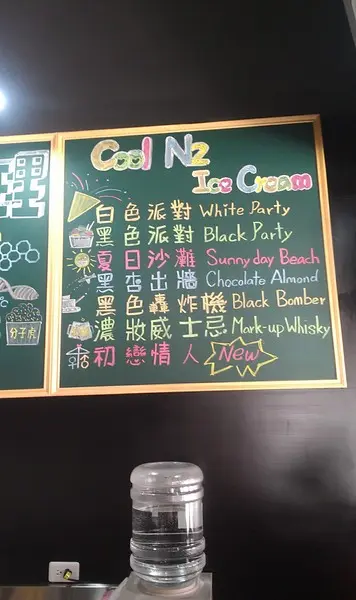 理
Cool N2
Ice Cream
白色派對 White Party
黑色派對 Black Party
夏日沙灘 Sunny day Beach
黑杏出牆 Chocolate Almond
黑色轟炸機 Black Bomber
濃妝威士忌 Mark-up Whisky
初戀情人 New
分子虎